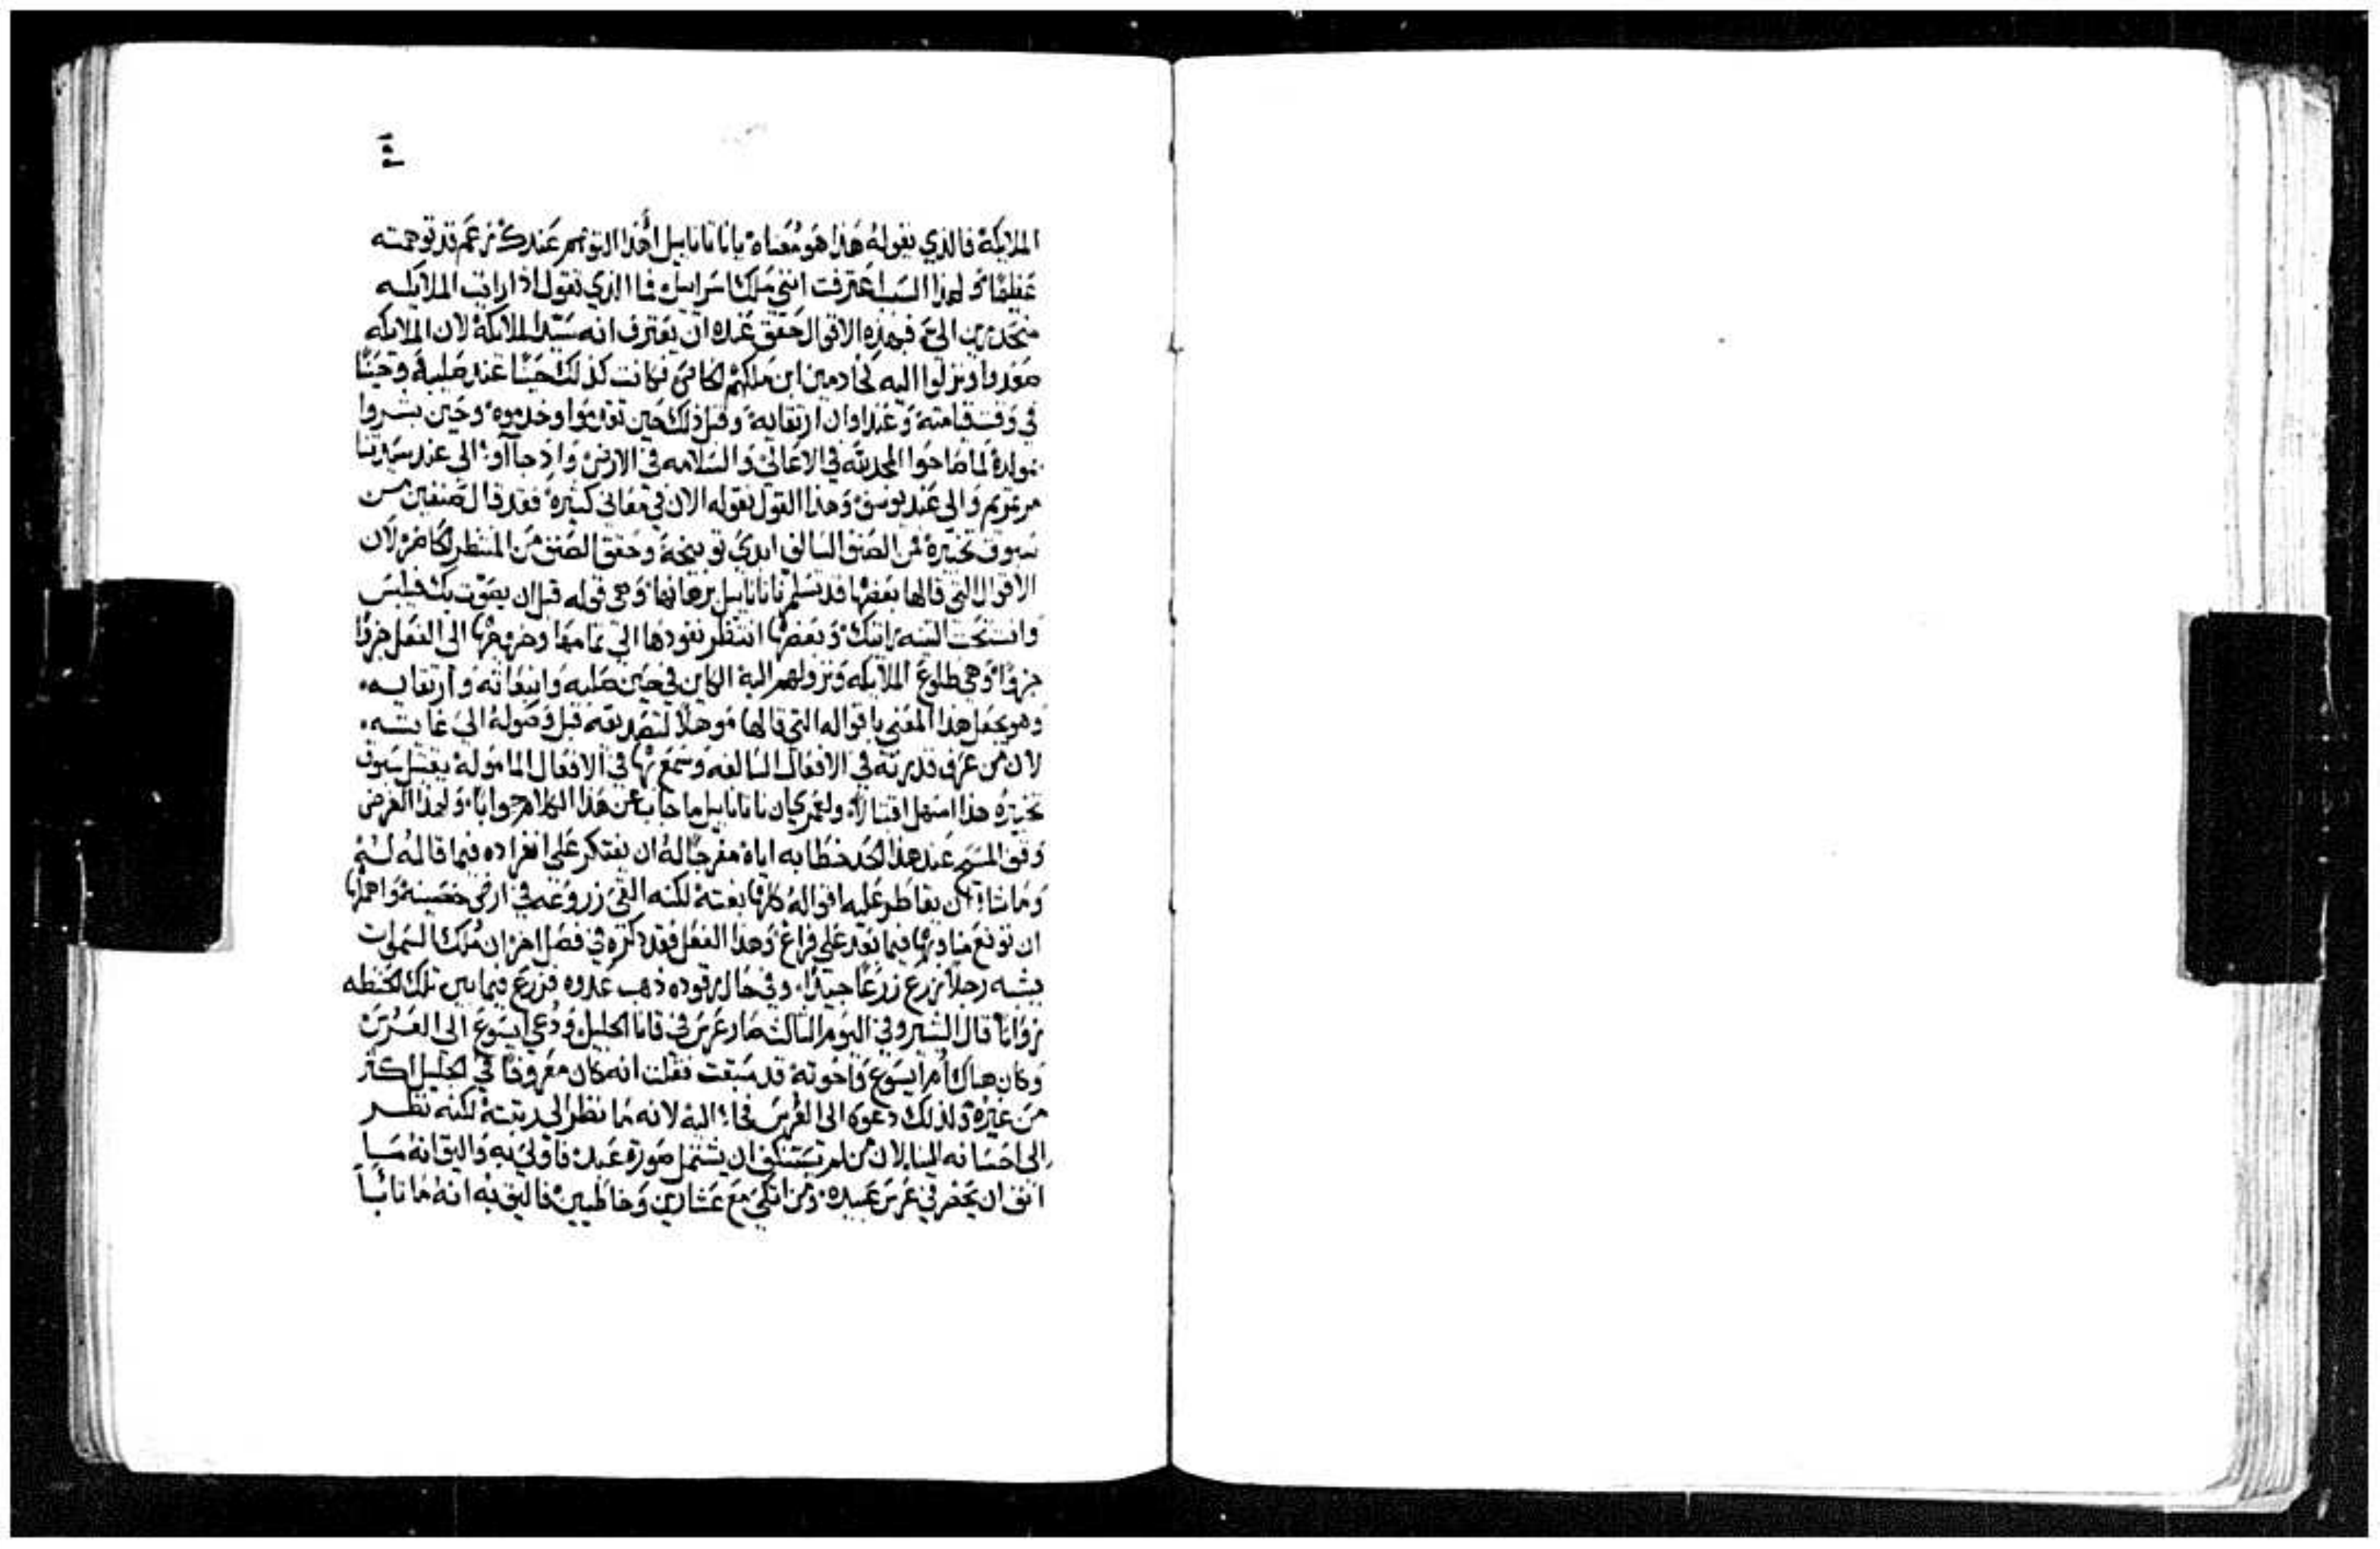 الملايكة فالذي يقوله هذا هو معناه يا ناثاناييل اهذا التوهم عندك نزعم قد توهمته
عظيمًا ولهذا السبب اعترفت انني ملك اسراييل فما الذي تقول اذا رايت الملايكه
منحدرين اليّ فبهذه الاقوال حقق عنده ان يعترف انه سيد الملايكة لان الملايكه
صعدوا ونزلوا اليه كخادمين ابن ملكهم الخاص فكانت كذلك حينًا عند صلبه وحينًا
في وقت قيامته وعند اوان ارتقايه وقبل ذلك حين تقدموا وخدموه وحين بشروا
بمولده لما صاحوا المجد لله في الاعالي والسلامه في الارض واذ جاآوا الى عند سيدتنا
مرتمريم والى عند يوسف وهذا القول نقوله الان في معاني كثيره فقد قال صنفين من
سوف تخبره من الصنف السالف ابدى توبيخه وحقق الصنف من المنتظر الحاضر لان
الاقوال التي قالها بعضها قد تسلم ناثاناييل برهانها وهي قوله قبل ان يصوت بك فيلبس
وانت تحت التينه رايتك وبعضها انتظر نفوذها الى تمامها وخروجها الى الفعل جزوًا
جزوًا وهي طلوع الملايكه ونزولهم اليه الكاين في حين صلبه وانبعاثه وارتقايه
وهو يجعل هذا المعنى باقواله التي قالها موهلًا لتصديقه قبل وصوله الى غايته
لان من عرف قدرته في الافعال السالفه وسمع بها في الافعال المامولة يقتبل سوف
تخبره هذا اسهل اقتبالًا ولعمري ان ناثاناييل ما جاب عن هذا الكلام جوابًا ولهذا الغرض
وقف المسيح عند هذا الحد خطابه اياه مفرجًا له ان يفتكر على انفراده فيما قاله له
وما شاء ان يقاطر عليه اقواله كلها بغتة لكنه القى زروعه في ارض خصبه واهملها
ان تونع مبادرها فيما بعد على فراغ وهذا الفعل فقد ذكره في فصل اخر ان ملك السموات
يشبه رجلًا زرع زرعًا جيدًا وفي حال رقوده ذهب عدوه فزرع فيما بين تلك الحنطه
زوانا قال البشير وفي اليوم الثالث صار عرس في قانا الجليل ودعي ايسوع الى العرس
وكان هناك ام ايسوع واخوته قد سبقت فقلت انه كان معروفًا في الجليل اكثر
من غيره ولذلك دعوه الى العرس فجاء اليه لانه ما نظر الى رتبته لكنه نظر
الى احسانه الينا لان من لم يستنكف ان يشتمل صورة عبد فاولى به واليق انه ما
انف ان يحضر في عرس عبيده ومن اتكى مع عشارين وخاطيين فاليق به انه ما تابا